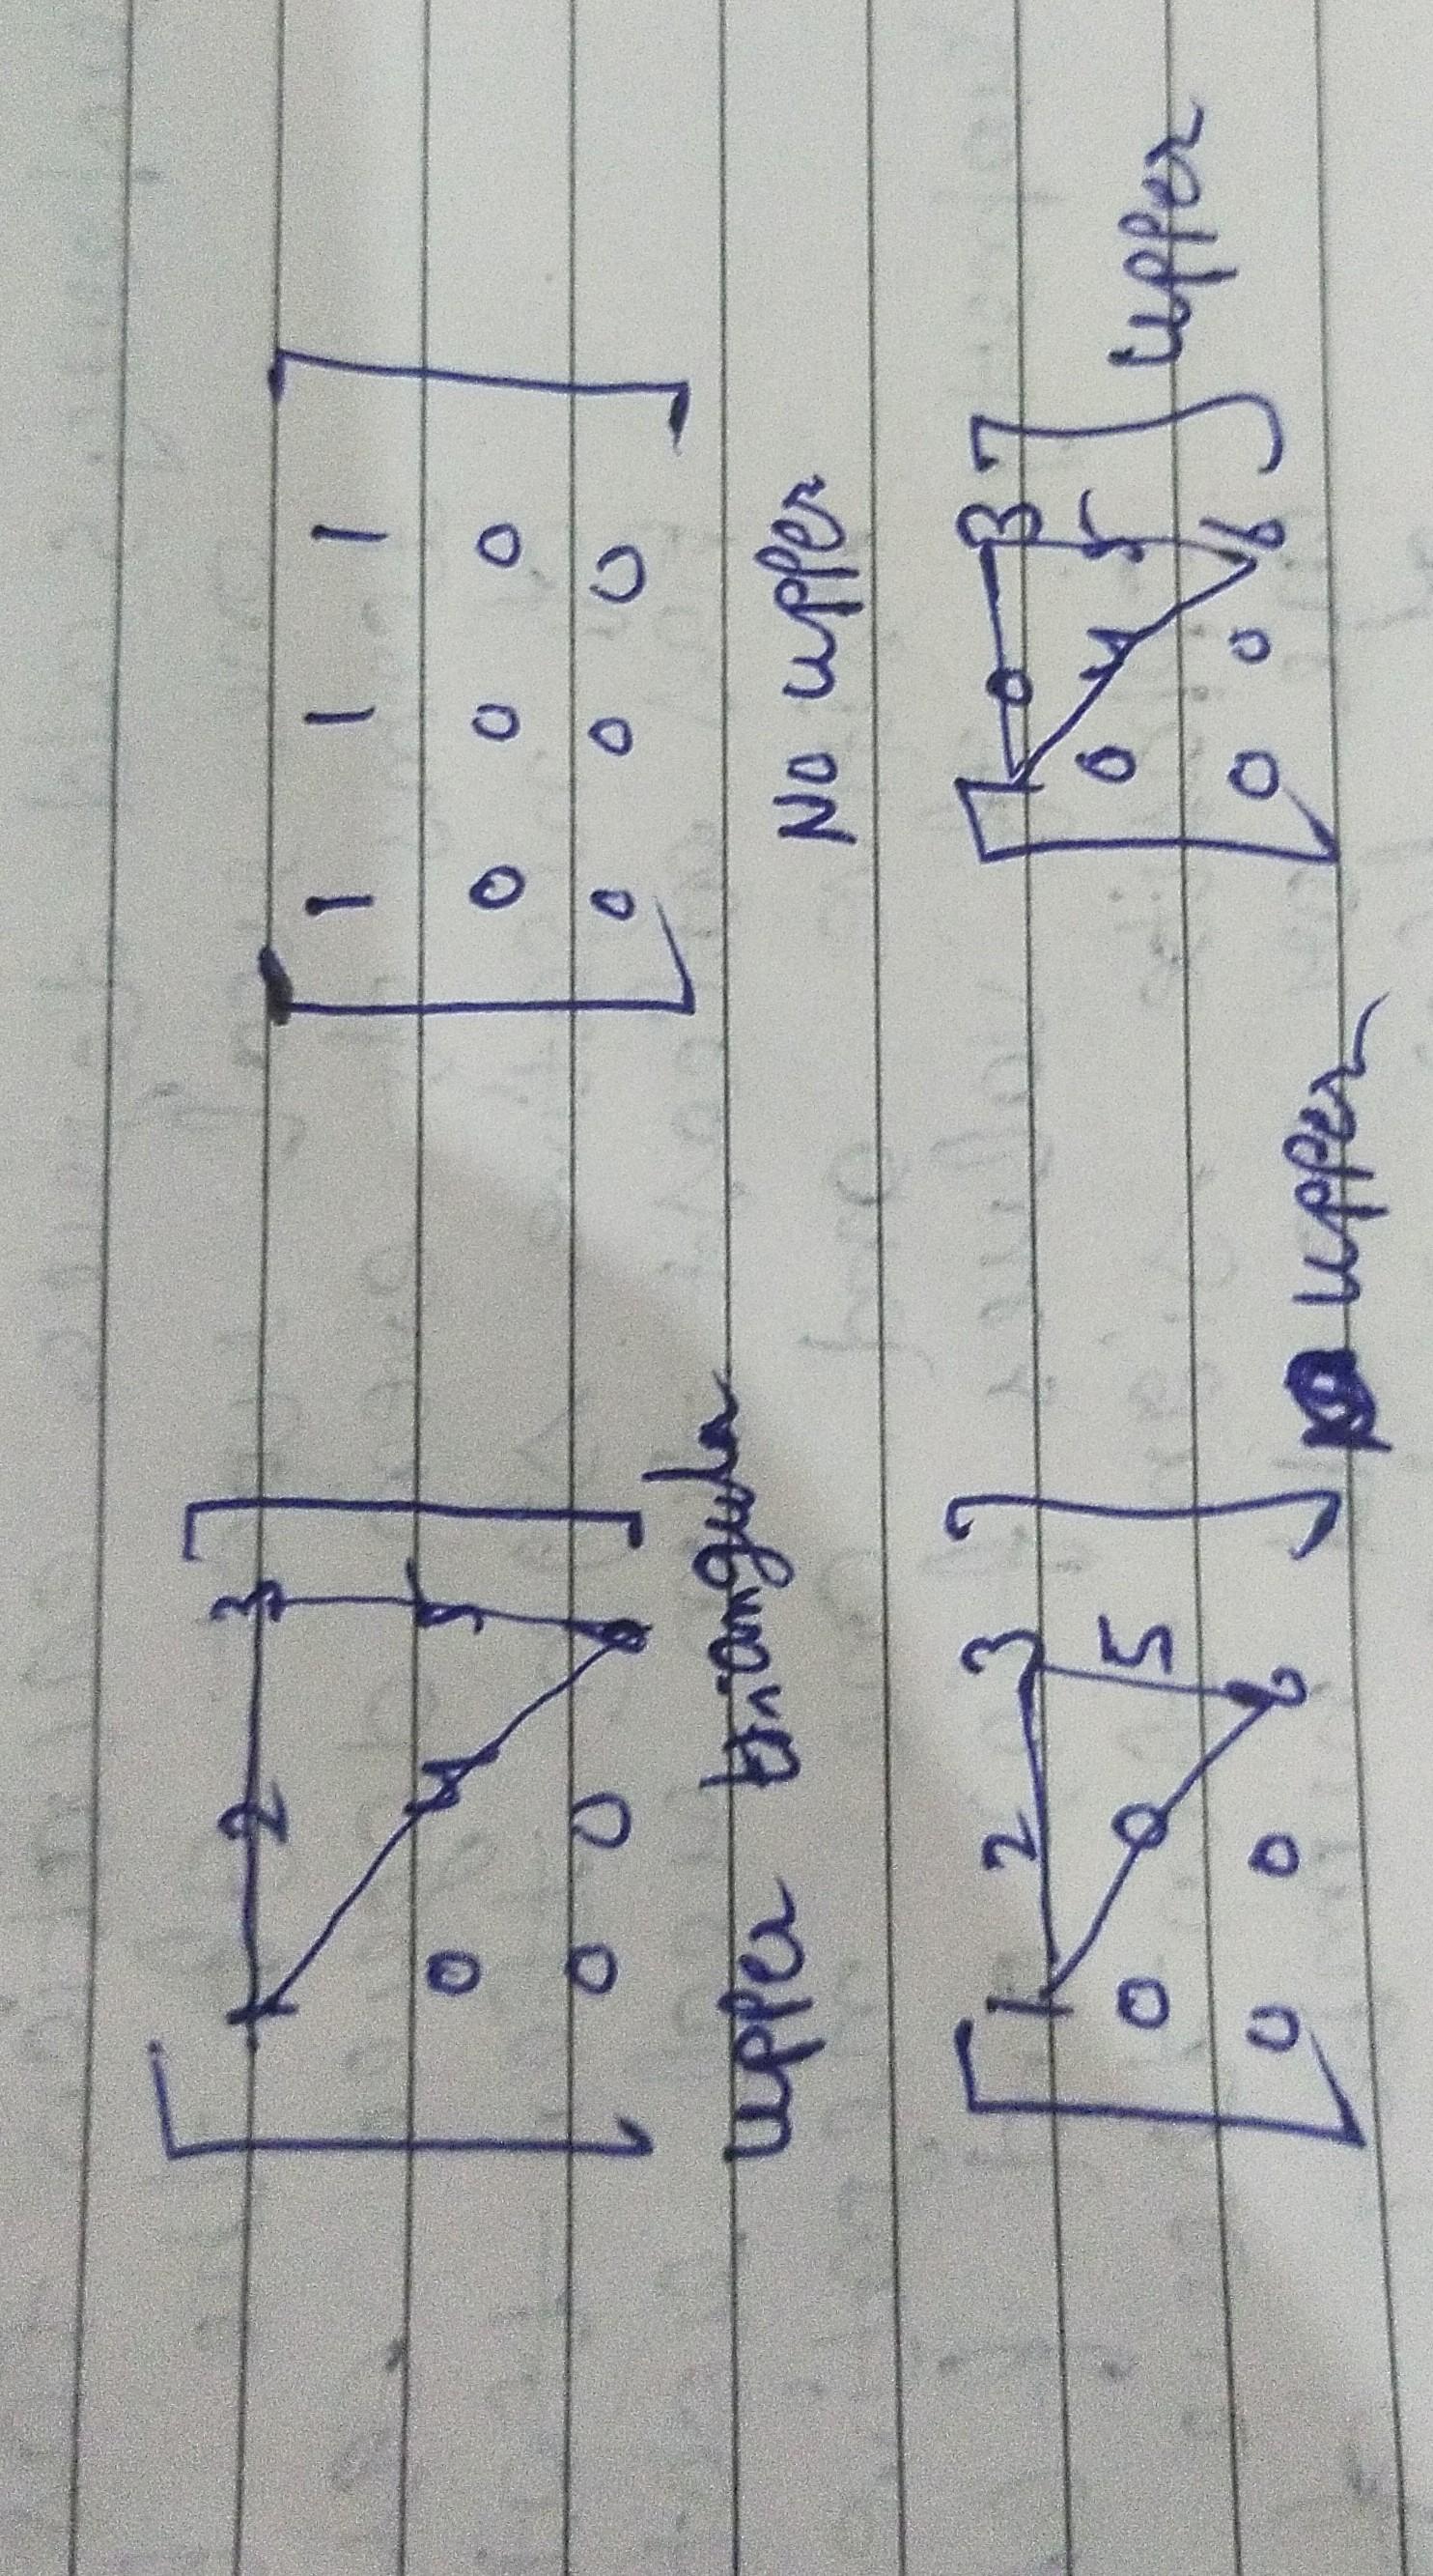 1 2 3
0 4 5
0 0
upper triangular
1 1 1
0 0 0
0 0 0
No upper
1 2 3
0 0 5
0 0 6
upper
1 0 3
0 4 5
0 0 6
upper